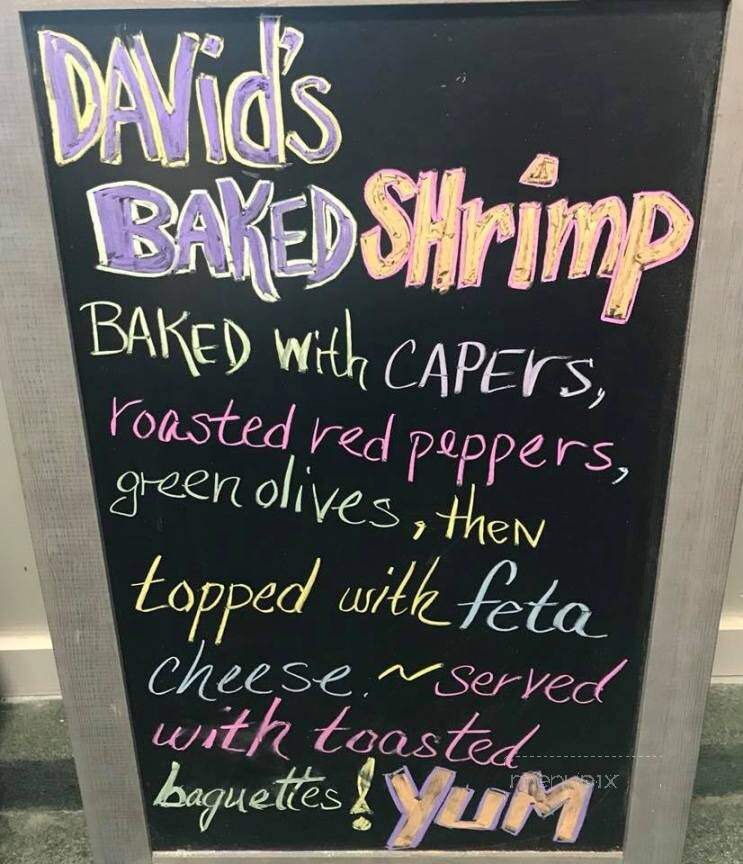 DAVid's
BAKED SHrimp
BAKED with CAPErs,
roasted red peppers,
green olives, then
topped with feta
cheese. ~ served
with toasted
baguettes! YUM
menupix